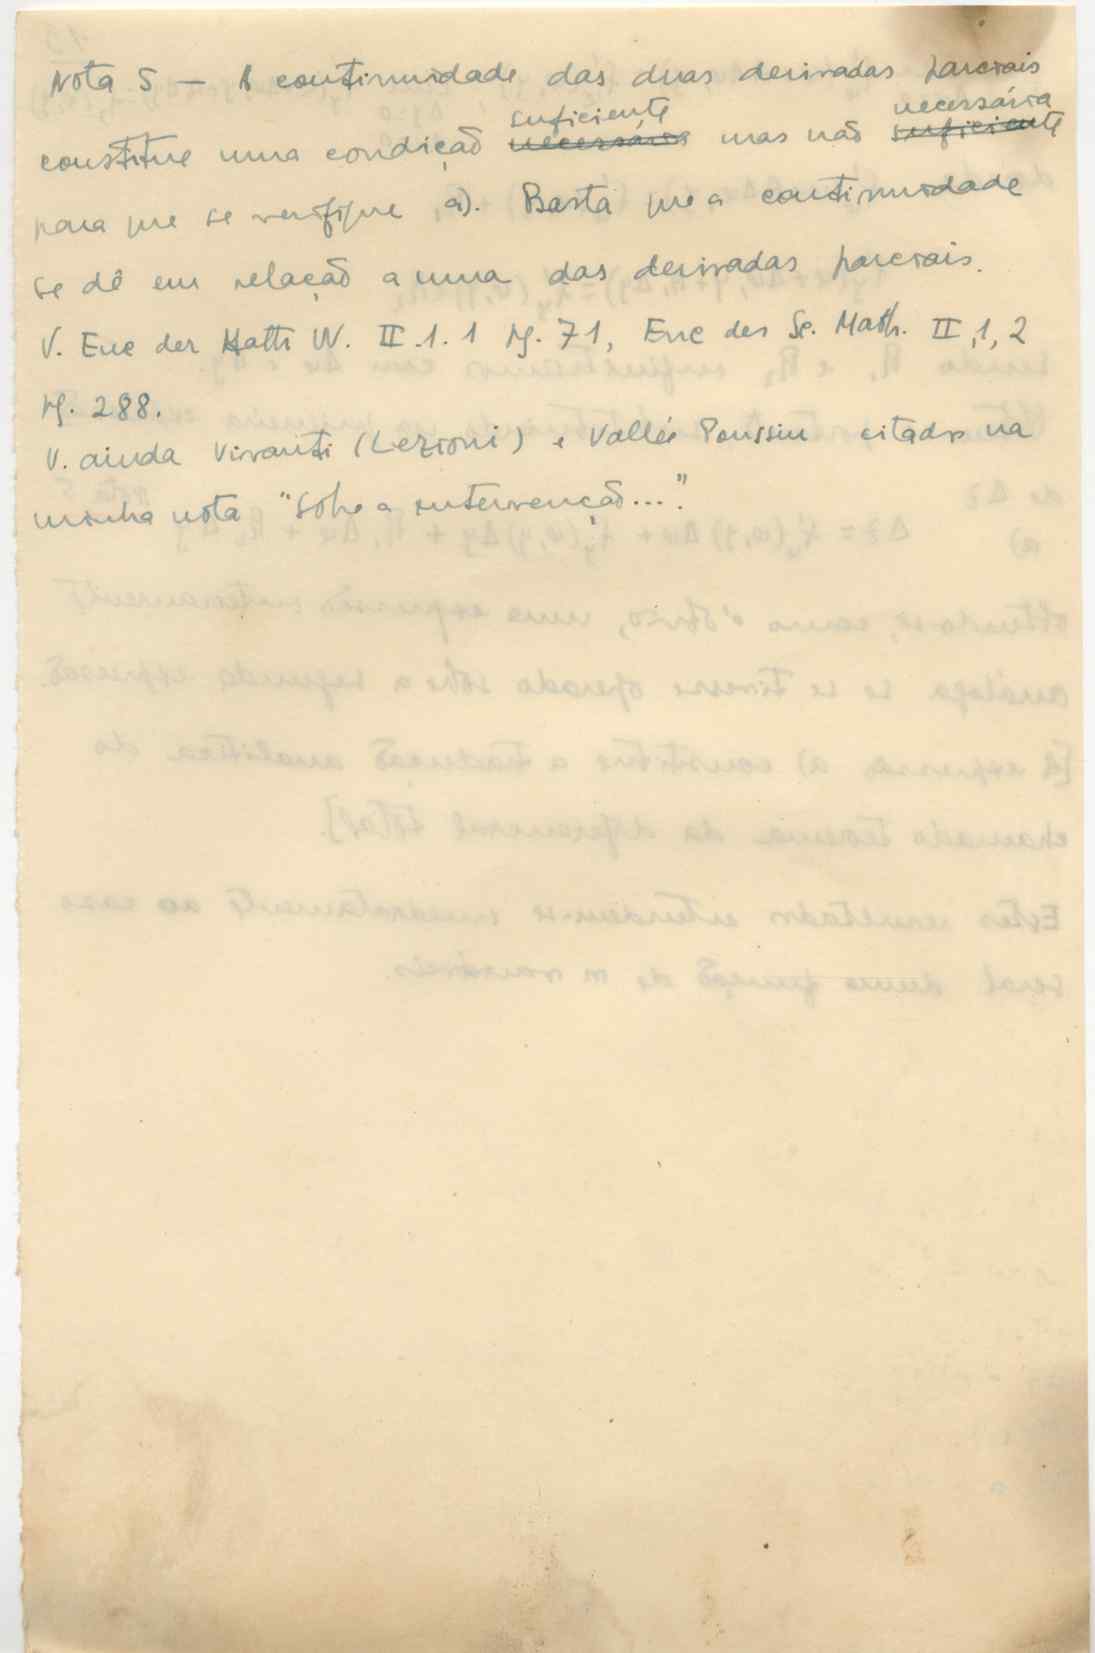 Nota 5 — A continuidade das duas derivadas parciais
suficiente necessária
constitue uma condição necessária mas não suficiente
para que se verifique a). Basta que a continuidade
se dê em relação a uma das derivadas parciais.
V. Enc der Math W. II.1.1 pg. 71, Enc des Sc. Math. II,1,2
pg. 288.
V. ainda Vivanti (Lezioni) e Vallée Poussin citados na
minha nota "Sobre a intervenção...".